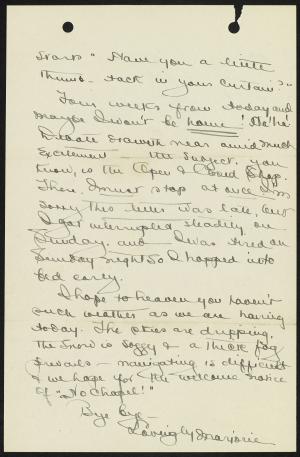 Starts "Have you a little
thumb-tack in your curtain?"
Four weeks from today and
maybe I won't be home! He he!
Debate draweth near amid much
excitement – the subject, you
know, is the Open & Closed Shop.
Then I must stop at once. I'm
sorry this letter was late, but
I got interrupted steadily on
Sunday, and I was tired on
Sunday night so I hopped into
bed early.
I hope to heaven you haven't
such weather as we are having
today. The skies are dripping,
the snow is soggy & a thick fog
prevails – navigating is difficult
& we hope for the welcome notice
of "No Chapel!"
Bye bye –
Lovingly Marjorie